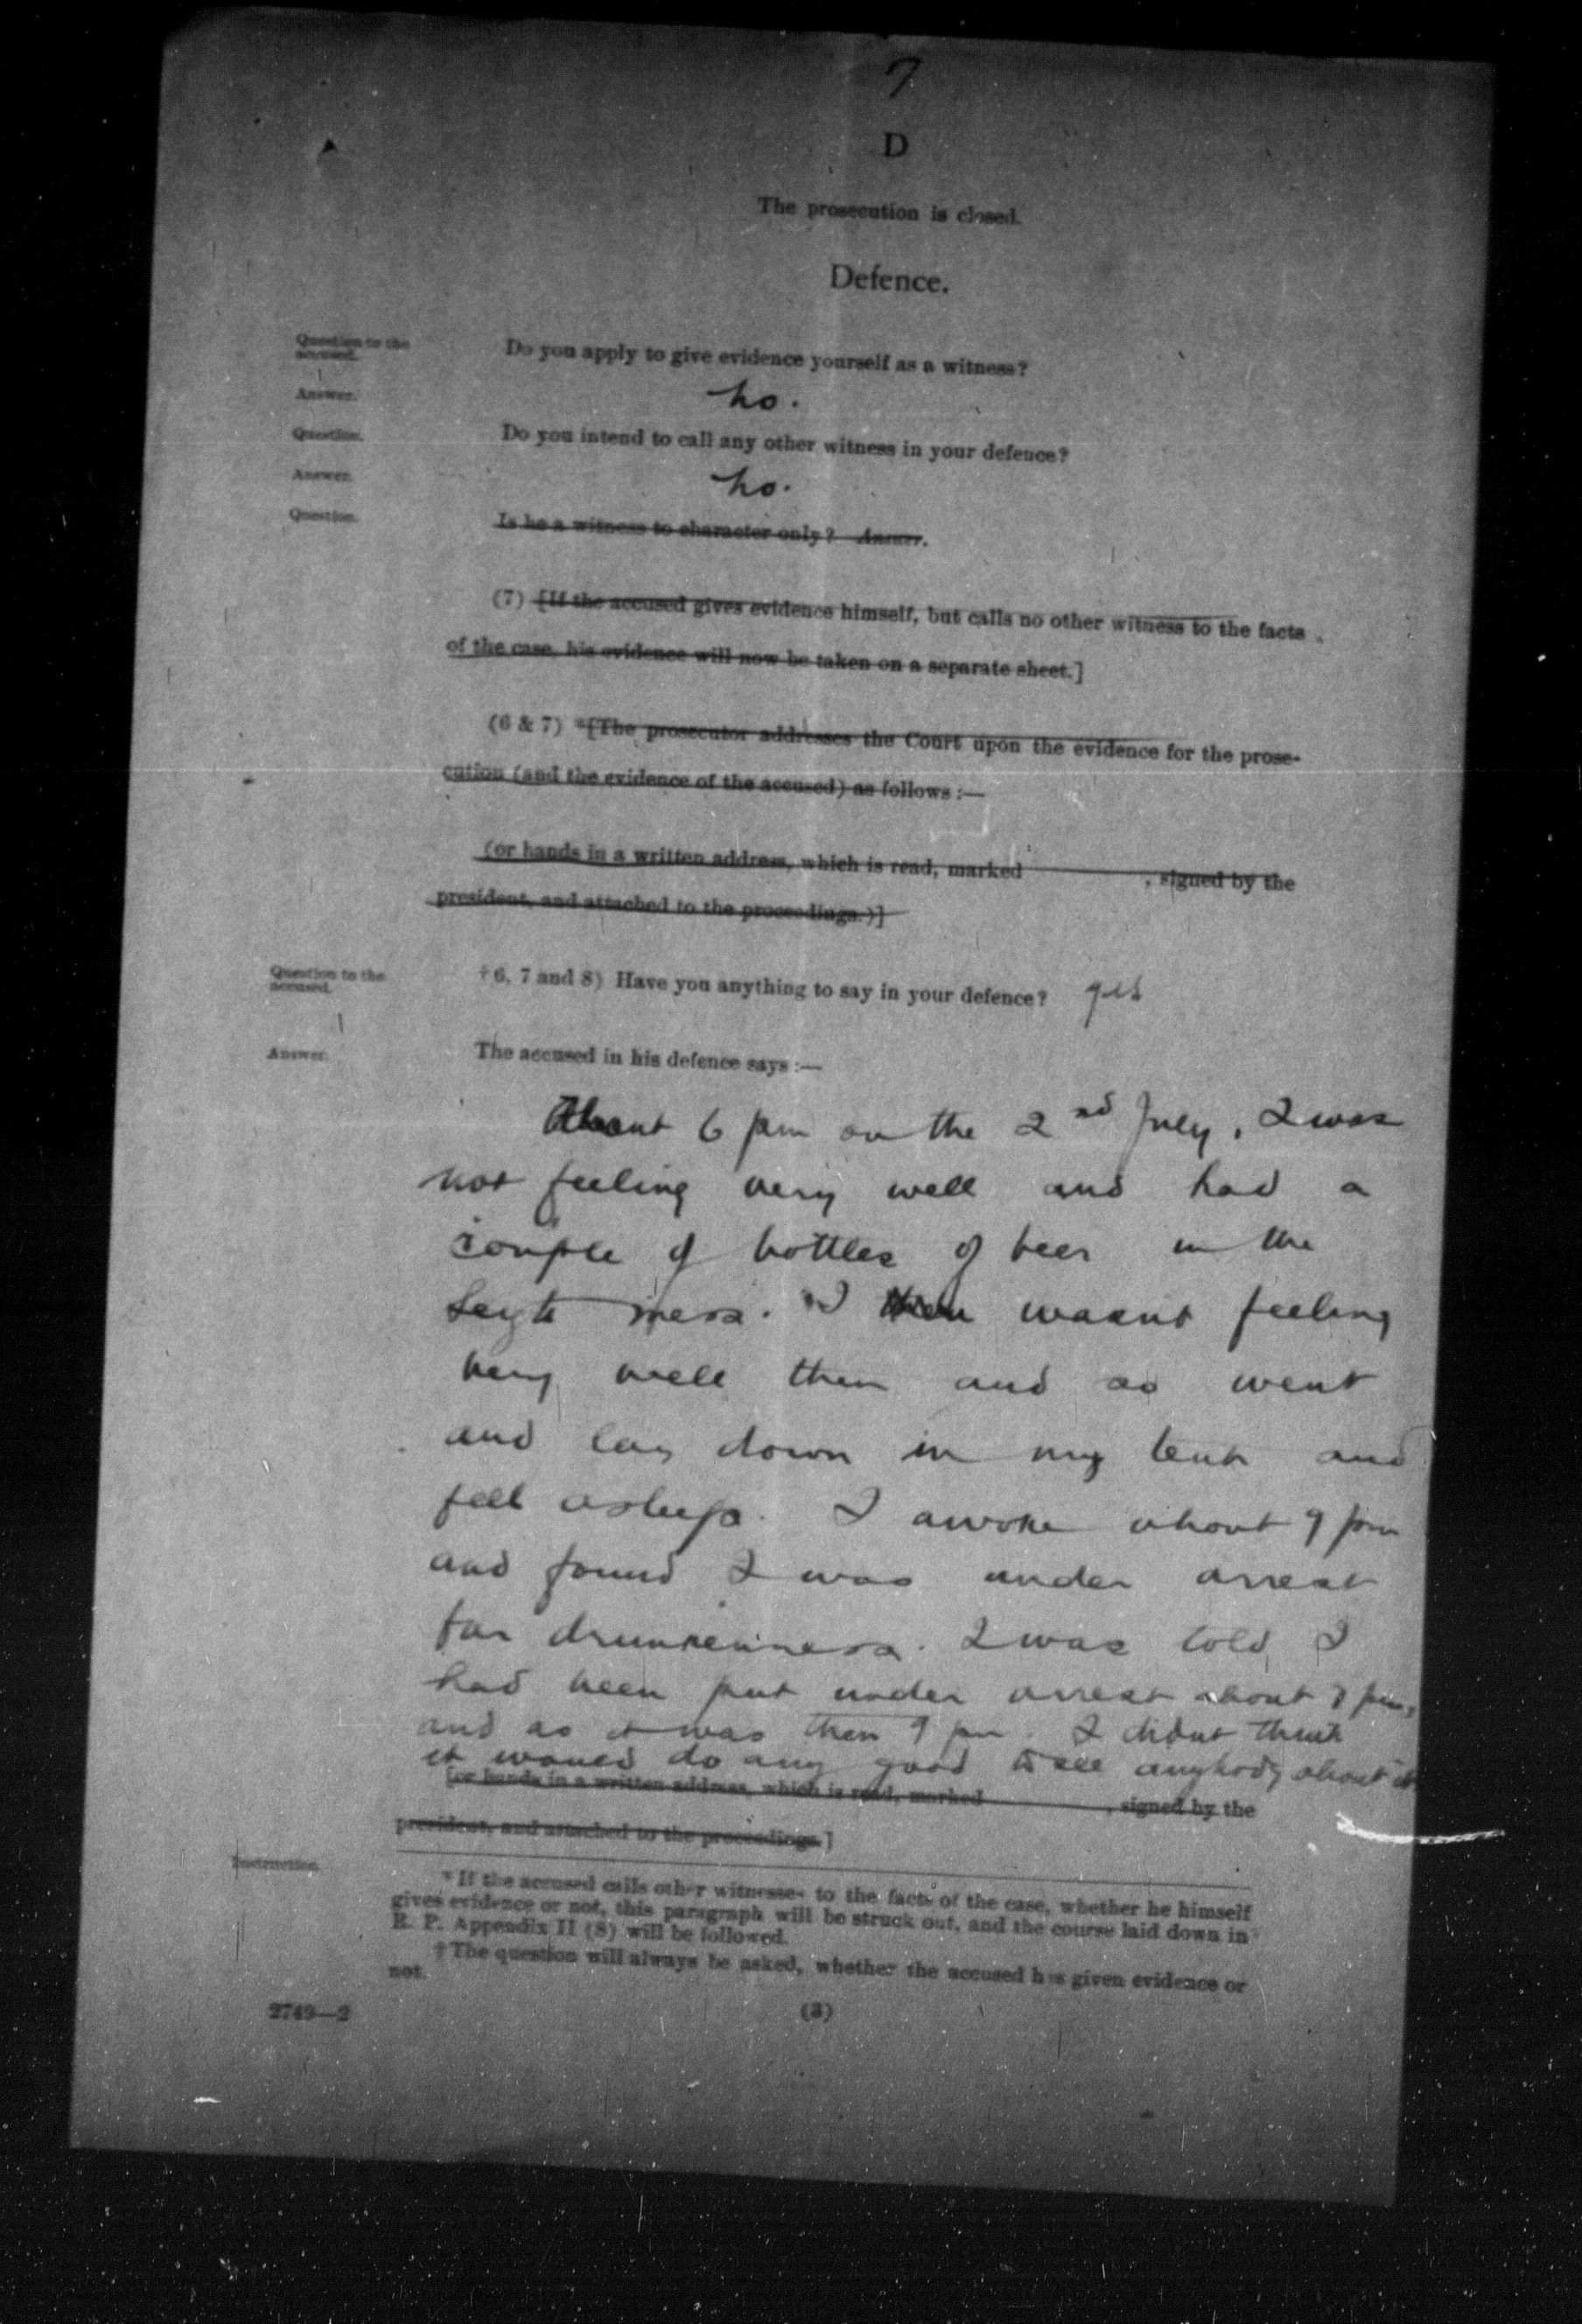 7
D
The prosecution is closed.
Defence.
Question to the
accused.
Do you apply to give evidence yourself as a witness?
Answer.
No.
Question.
Do you intend to call any other witness in your defence?
Answer.
No.
Question.
Is he a witness to character only? Answer.
(7) [If the accused gives evidence himself, but calls no other witness to the facts
of the case, his evidence will now be taken on a separate sheet.]
(6 & 7) *[The prosecutor addresses the Court upon the evidence for the prose-
cution (and the evidence of the accused) as follows :—
(or hands in a written address, which is read, marked , signed by the
president, and attached to the proceedings.)]
Question to the
accused.
†6, 7 and 8) Have you anything to say in your defence? yes
Answer.
The accused in his defence says :—
About 6 pm on the 2nd July, I was
not feeling very well and had a
couple of bottles of beer in the
Sergts mess. I then wasnt feeling
very well then and so went
and lay down in my tent and
fell asleep. I awoke about 9 pm
and found I was under arrest
for drunkenness. I was told I
had been put under arrest about 7 pm,
and as it was then 9 pm. I didnt think
it would do any good to see anybody about it
[or hands in a written address, which is read, marked , signed by the
president, and attached to the proceedings.]
Instruction.
* If the accused calls other witnesses to the facts of the case, whether he himself
gives evidence or not, this paragraph will be struck out, and the course laid down in
R. P. Appendix II (8) will be followed.
† The question will always be asked, whether the accused has given evidence or
not.
2749—2
(3)